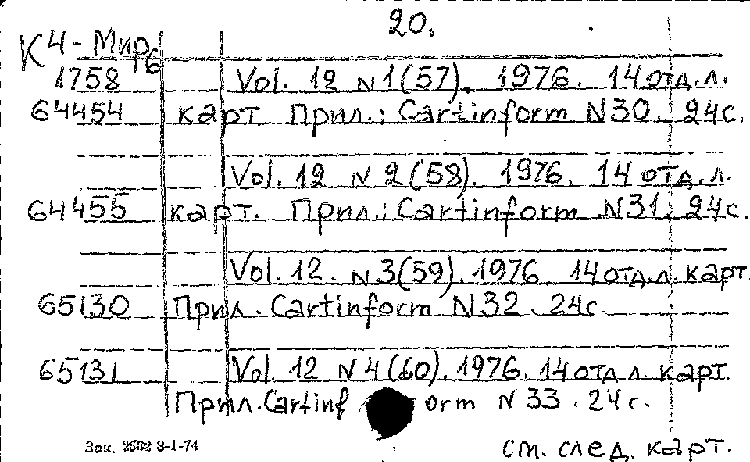 20.
К4-Мир6
1758 Vol. 12 N1(57). 1976. 14отд.л.
64454 карт Прил.: Cartinform N30. 24с.
Vol. 12 N 2(58). 1976. 14 отд.л.
64455 карт. Прил.: Cartinform N31. 24с.
Vol. 12. N3(59). 1976 14отд.л. карт
65130 Прил. Cartinform N32. 24с
65131 Vol. 12 N4(60). 1976. 14отд л. карт.
Прил. Cartinf orm N 33. 24с.
Зак. 8-1-74
см. след. карт.